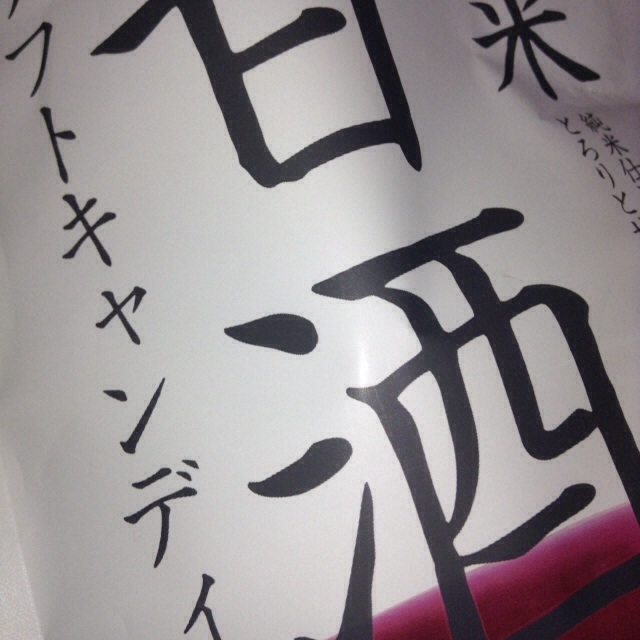 米
とろりと
甘酒
フトキャンディ